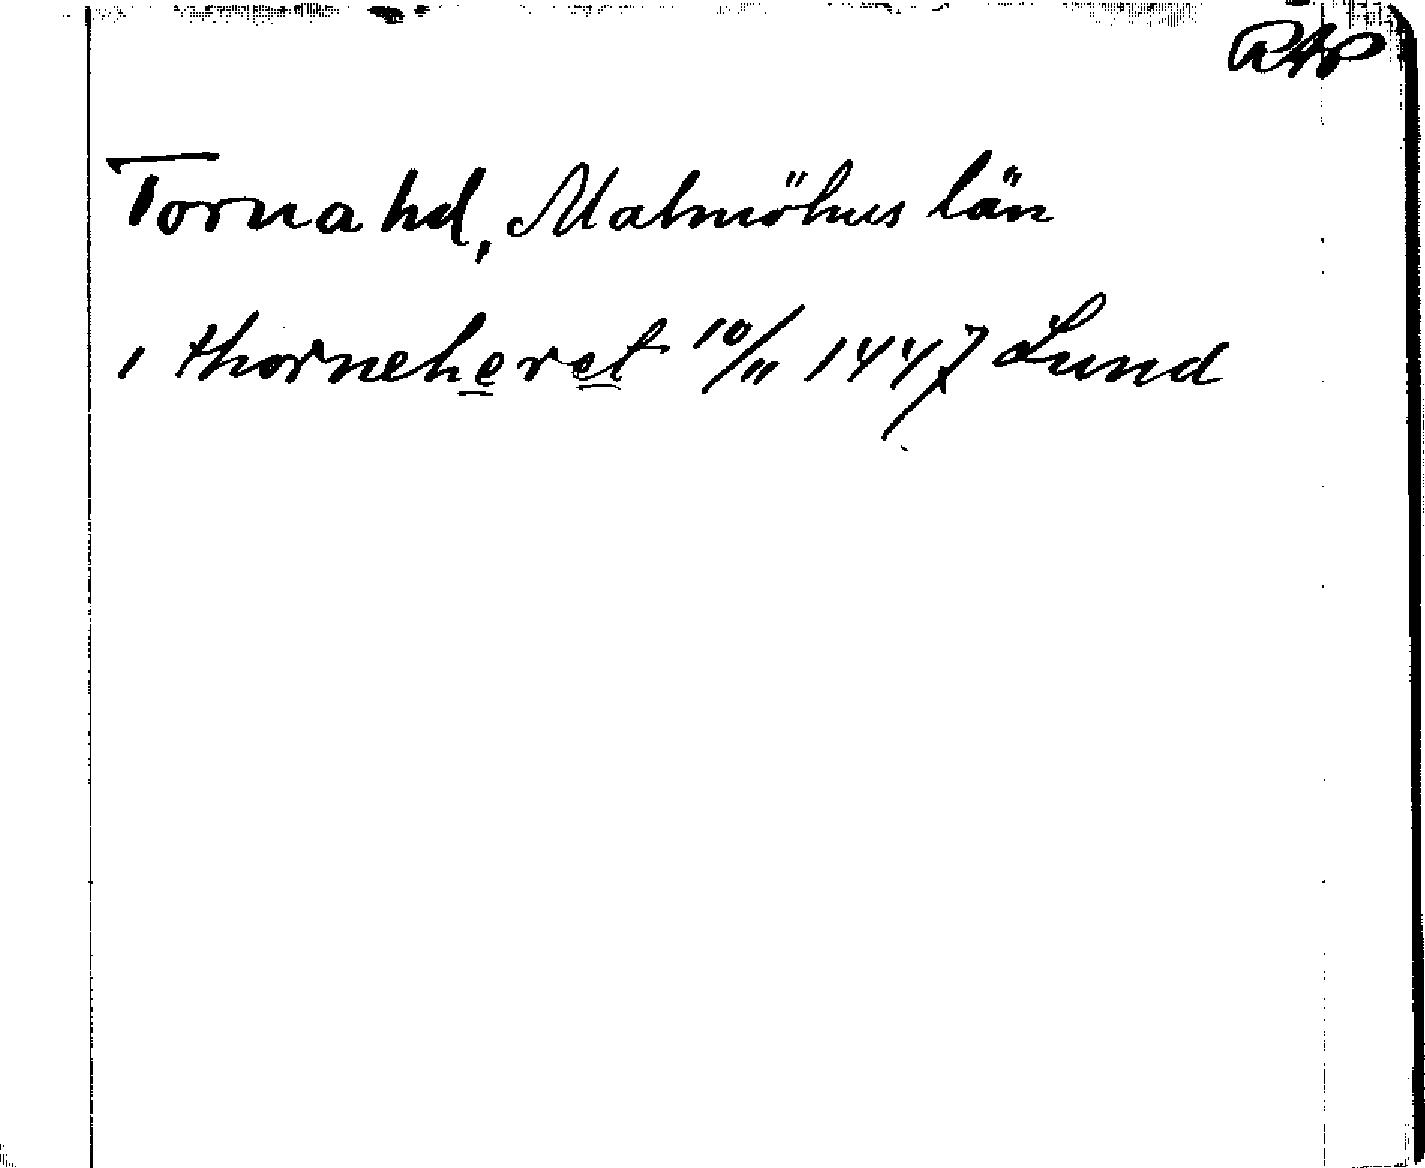 RAP
Torna hd, Malmöhus län
i thorneheret 10/11 1447 Lund